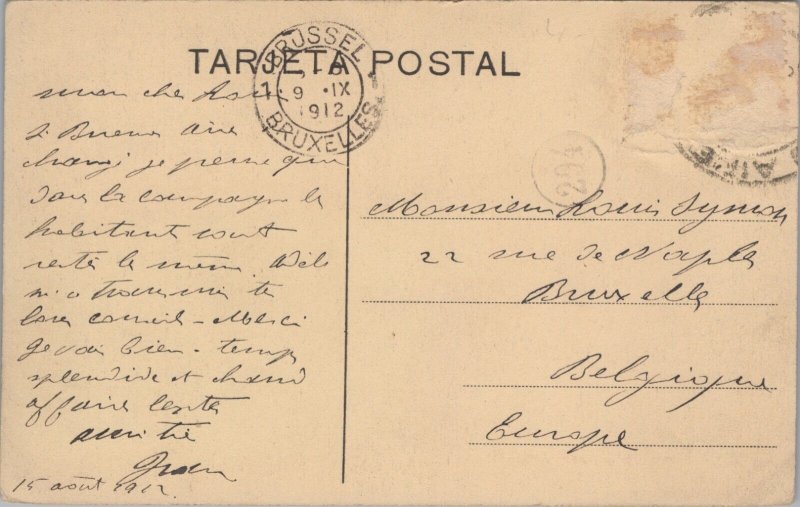 TARJETA POSTAL
1 BRUSSEL
9 · IX
1912
BRUXELLES
294
AIRE
mon cher Louis
Si Buenos Aires
changé je pense que
dans la campagne les
habitants sont
restés les mêmes. Adèle
m'a transmis tes
bons conseils - Merci
Je vais bien - temps
splendide et chaud
affaires lentes
amitié
15 août 1912
Monsieur Louis Symon
22 rue de Naples
Bruxelles
Belgique
Europe